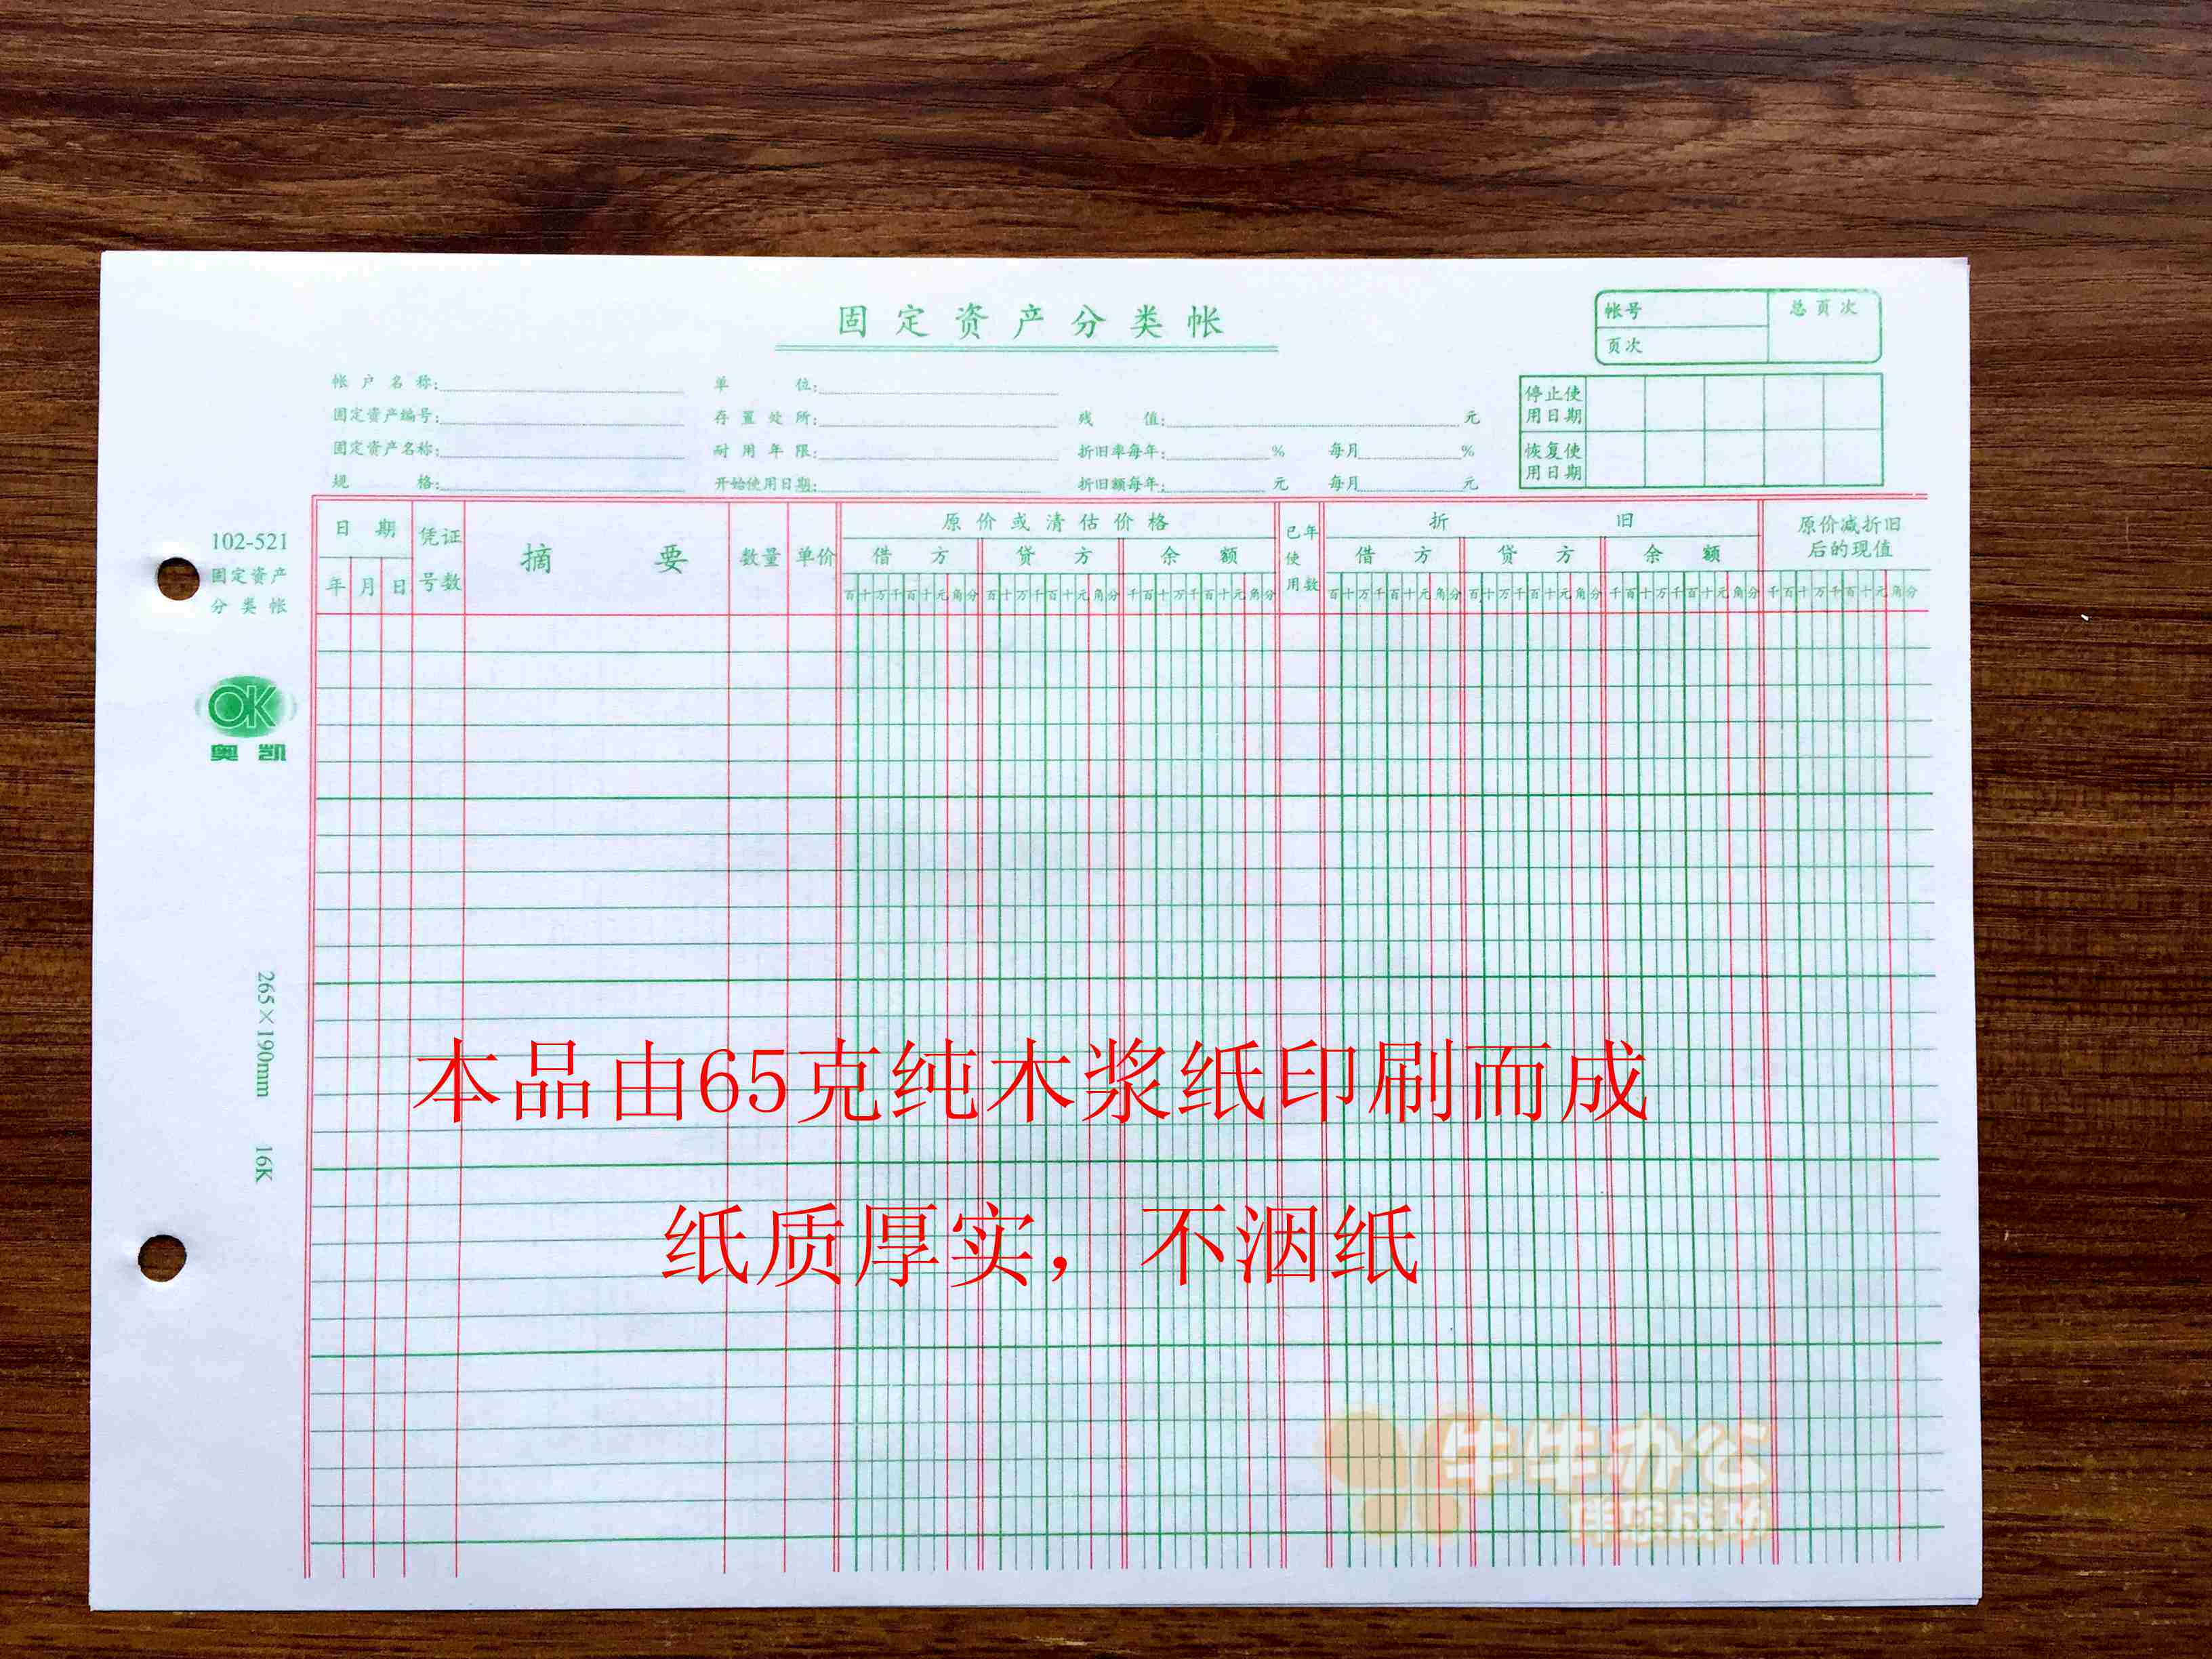 固定资产分类帐
帐号
总页次
页次
帐户名称:
单位:
固定资产编号:
存置处所:
残值: 元
固定资产名称:
耐用年限:
折旧率每年: % 每月 %
规格:
开始使用日期:
折旧额每年: 元 每月 元
停止使
用日期
恢复使
用日期
102-521
固定资产
分类帐
OK
奥凯
265×190mm 16K
日期
年 月 日
凭证
号数
摘要
数量
单价
原价或清估价格
借方 贷方 余额
百十万千百十元角分 百十万千百十元角分 千百十万千百十元角分
已年
使
用数
折旧
借方 贷方 余额
百十万千百十元角分 百十万千百十元角分 千百十万千百十元角分
原价减折旧
后的现值
千百十万千百十元角分
本品由65克纯木浆纸印刷而成
纸质厚实，不洇纸
牛牛办公
伴您成功